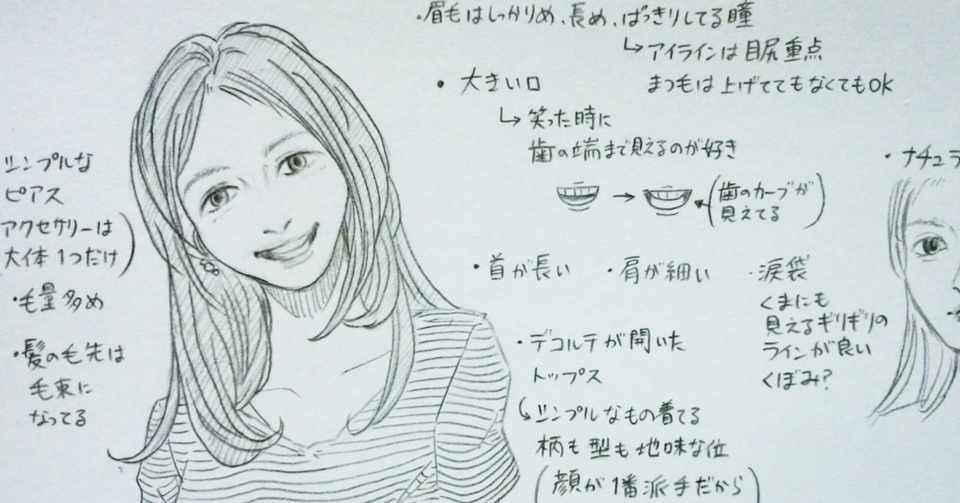 ・眉毛はしっかりめ、長め、ぱっきりしてる瞳
↳アイラインは目尻重点
まつ毛は上げててもなくてもOK
・大きい口
↳笑った時に
歯の端まで見えるのが好き
→
(歯のカーブが
見えてる)
シンプルな
ピアス
アクセサリーは
大体1つだけ)
・毛量多め
・髪の毛先は
毛束に
なってる
・首が長い
・肩が細い
・涙袋
くまにも
見えるギリギリの
ラインが良い
くぼみ?
・デコルテが開いた
トップス
↳シンプルなもの着てる
柄も型も地味な位
(顔が1番派手だから)
・ナチュラ